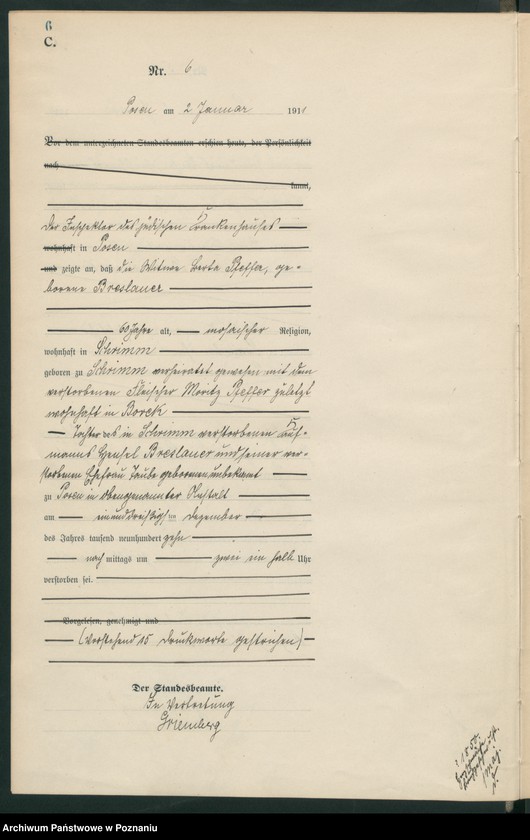 6
C.
Nr. 6
Posen am 2 Januar 1911
Vor dem unterzeichneten Standesbeamten erschien heute, der Persönlichkeit
nach
kannt,
Der Inspektor des jüdischen Krankenhauses
wohnhaft in Posen
und zeigte an, daß die Witwe Berta Pfeffer, ge-
borene Breslauer
60 Jahre alt, mosaischer Religion,
wohnhaft in Schrimm
geboren zu Schrimm verheiratet gewesen mit dem
verstorbenen Fleischer Moritz Pfeffer zuletzt
wohnhaft in Borek
Tochter des in Schrimm verstorbenen Kauf-
manns Hensel Breslauer und seiner ver-
storbenen Ehefrau Taube geborenen unbekannt
zu Posen in obengenannter Anstalt
am einunddreißigsten Dezember
des Jahres tausend neunhundert zehn
nachmittags um zwei ein halb Uhr
verstorben sei.
Vorgelesen, genehmigt und
(Vorstehend 15 Druckworte gestrichen)
Der Standesbeamte.
In Vertretung
Archiwum Państwowe w Poznaniu